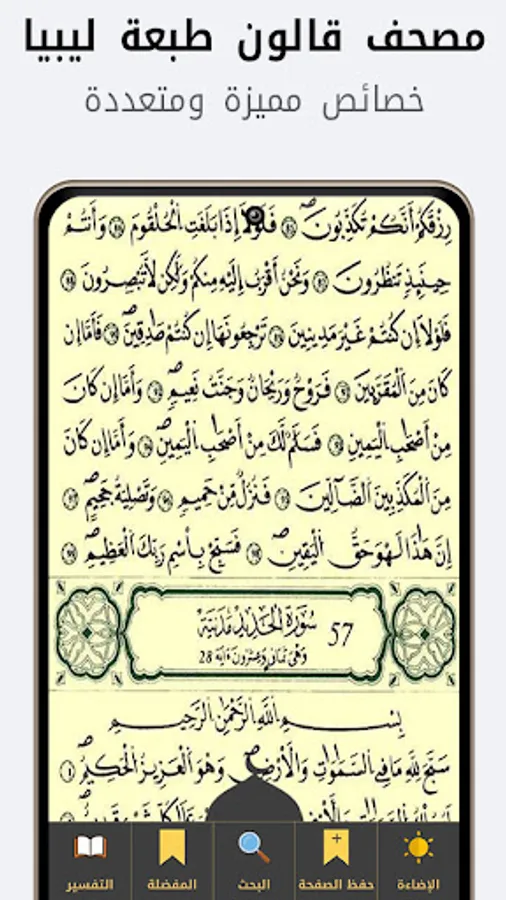 مصحف قالون طبعة ليبيا
خصائص مميزة ومتعددة
رِزْقَكُمْ أَنَّكُمْ تُكَذِّبُونَ فَلَوْلَا إِذَا بَلَغَتِ الْحُلْقُومَ وَأَنتُمْ
حِينَئِذٍ تَنظُرُونَ وَنَحْنُ أَقْرَبُ إِلَيْهِ مِنكُمْ وَلَٰكِن لَّا تُبْصِرُونَ
فَلَوْلَا إِن كُنتُمْ غَيْرَ مَدِينِينَ تَرْجِعُونَهَا إِن كُنتُمْ صَٰدِقِينَ فَأَمَّا إِن
كَانَ مِنَ الْمُقَرَّبِينَ فَرَوْحٌ وَرَيْحَانٌ وَجَنَّتُ نَعِيمٍ وَأَمَّا إِن كَانَ
مِنْ أَصْحَٰبِ الْيَمِينِ فَسَلَٰمٌ لَّكَ مِنْ أَصْحَٰبِ الْيَمِينِ وَأَمَّا إِن كَانَ
مِنَ الْمُكَذِّبِينَ الضَّآلِّينَ فَنُزُلٌ مِّنْ حَمِيمٍ وَتَصْلِيَةُ جَحِيمٍ
إِنَّ هَٰذَا لَهْوَ حَقُّ الْيَقِينِ فَسَبِّحْ بِاسْمِ رَبِّكَ الْعَظِيمِ
57 سُورَةُ الْحَدِيدِ مَدَنِيَّة
وَهْيَ ثَمَانٍ وَعِشْرُونَ ءَايَة 28
بِسْمِ اللَّهِ الرَّحْمَٰنِ الرَّحِيمِ
سَبَّحَ لِلَّهِ مَا فِي السَّمَٰوَٰتِ وَالْأَرْضِ وَهْوَ الْعَزِيزُ الْحَكِيمُ
الإضاءة
حفظ الصفحة
البحث
المفضلة
التفسير